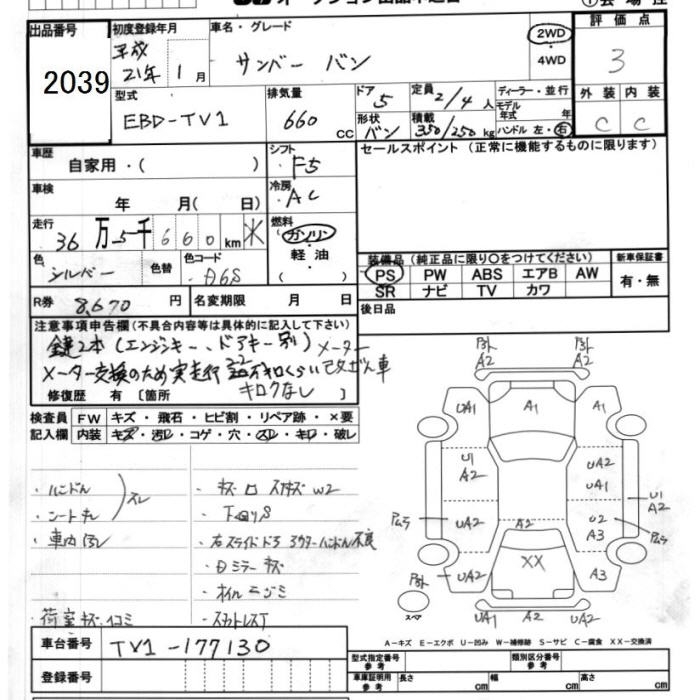 出品番号
2039
初度登録年月
平成
21年 1月
車名・グレード
サンバー バン
2WD
・
4WD
評価点
3
型式
EBD-TV1
排気量
660 CC
ドア
5
形状
バン
定員
2/4人
積載
350/250 kg
ディーラー・並行
モデル年式 年
ハンドル 左・右
外装 内装
C C
車歴
自家用・( )
シフト
F5
セールスポイント (正常に機能するものに限ります)
車検
年 月( 日)
冷房
AC
走行
36万5千660km
燃料
ガソリン
軽油
( )
色
シルバー
色替
色コード
装備品 (純正品に限り○をつけてください)
新車保証書
PS PW ABS エアB AW
SR ナビ TV カワ
有・無
R券
8,670 円
名変期限 月 日
後日品
注意事項申告欄 (不具合内容等は具体的に記入して下さい)
鍵2本 (エンジンキー、ドアキー別) メーター
メーター交換のため実走行 くらい 改ざん車
キロクなし
修復歴 有 [箇所 ]
検査員記入欄
FW キズ・飛石・ヒビ割・リペア跡・×要
内装 キズ・汚レ・コゲ・穴・スレ・キレ・破レ
・ハンドル
・シート スレ
・車内汚レ
荷室キズ、凹コミ
・キズ凹 W2
・下回りS
・右スライドドア 不良
・ミラーキズ
・オイルニジミ
A2
A2
UA1
A1
A1
U1
A2
UA2
UA1
U1
A2
UA2
A2
U2
A3
XX
UA2
A3
スペア
UA1
A2
UA2
A-キズ E-エクボ U-凹み W-補修跡 S-サビ C-腐食 XX-交換済
車台番号
TV1-177130
登録番号
型式指定番号 参考
類別区分番号 参考
車庫証明用 参考
長さ cm
幅 cm
高さ cm